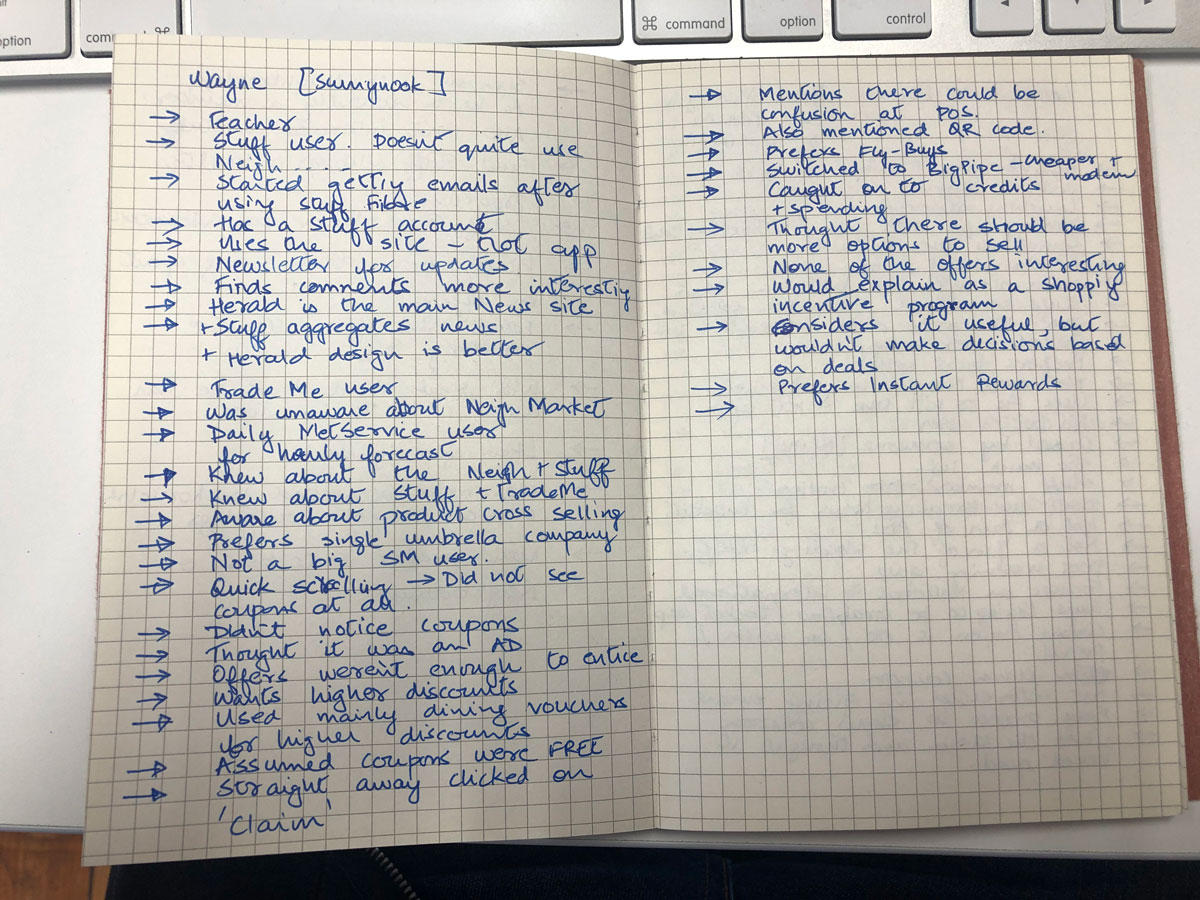 option
command
⌘
⌘ command
option
control
Wayne [Sunnynook]
→ Teacher
→ Stuff user. Doesn't quite use
Neigh.....
→ Started gettig emails after
using stuff Fibre
→ Has a stuff account
→ Uses the site - not app
→ Newsletter for updates
→ Finds comments more interestig
→ Herald is the main News site
→ + Stuff aggregates news
+ Herald design is better
→ Trade Me user
→ Was unaware about Neigh Market
→ Daily MetService user
for hourly forecast
→ Knew about the Neigh + Stuff
→ Knew about Stuff + TradeMe
→ Aware about product cross selling
→ Prefers single umbrella company
→ Not a big SM user.
→ Quick scrolling → Did not see
coupons at all.
→ Didn't notice coupons
→ Thought it was an AD
→ Offers weren't enough to entice
→ Wants higher discounts
→ Used mainly dining vouchers
for higher discounts
→ Assumed coupons were FREE
→ Straight away clicked on
'Claim'
→ Mentions there could be
confusion at POS.
→ Also mentioned QR code.
→ Prefers Fly-Buys
→ Switched to BigPipe - cheaper +
modem
→ Caught on to credits
+ spending
→ Thought there should be
more options to sell
→ None of the offers interesting
→ Would explain as a shoppig
incentive program
→ Considers it useful, but
wouldn't make decisions based
on deals
→ Prefers Instant Rewards
→